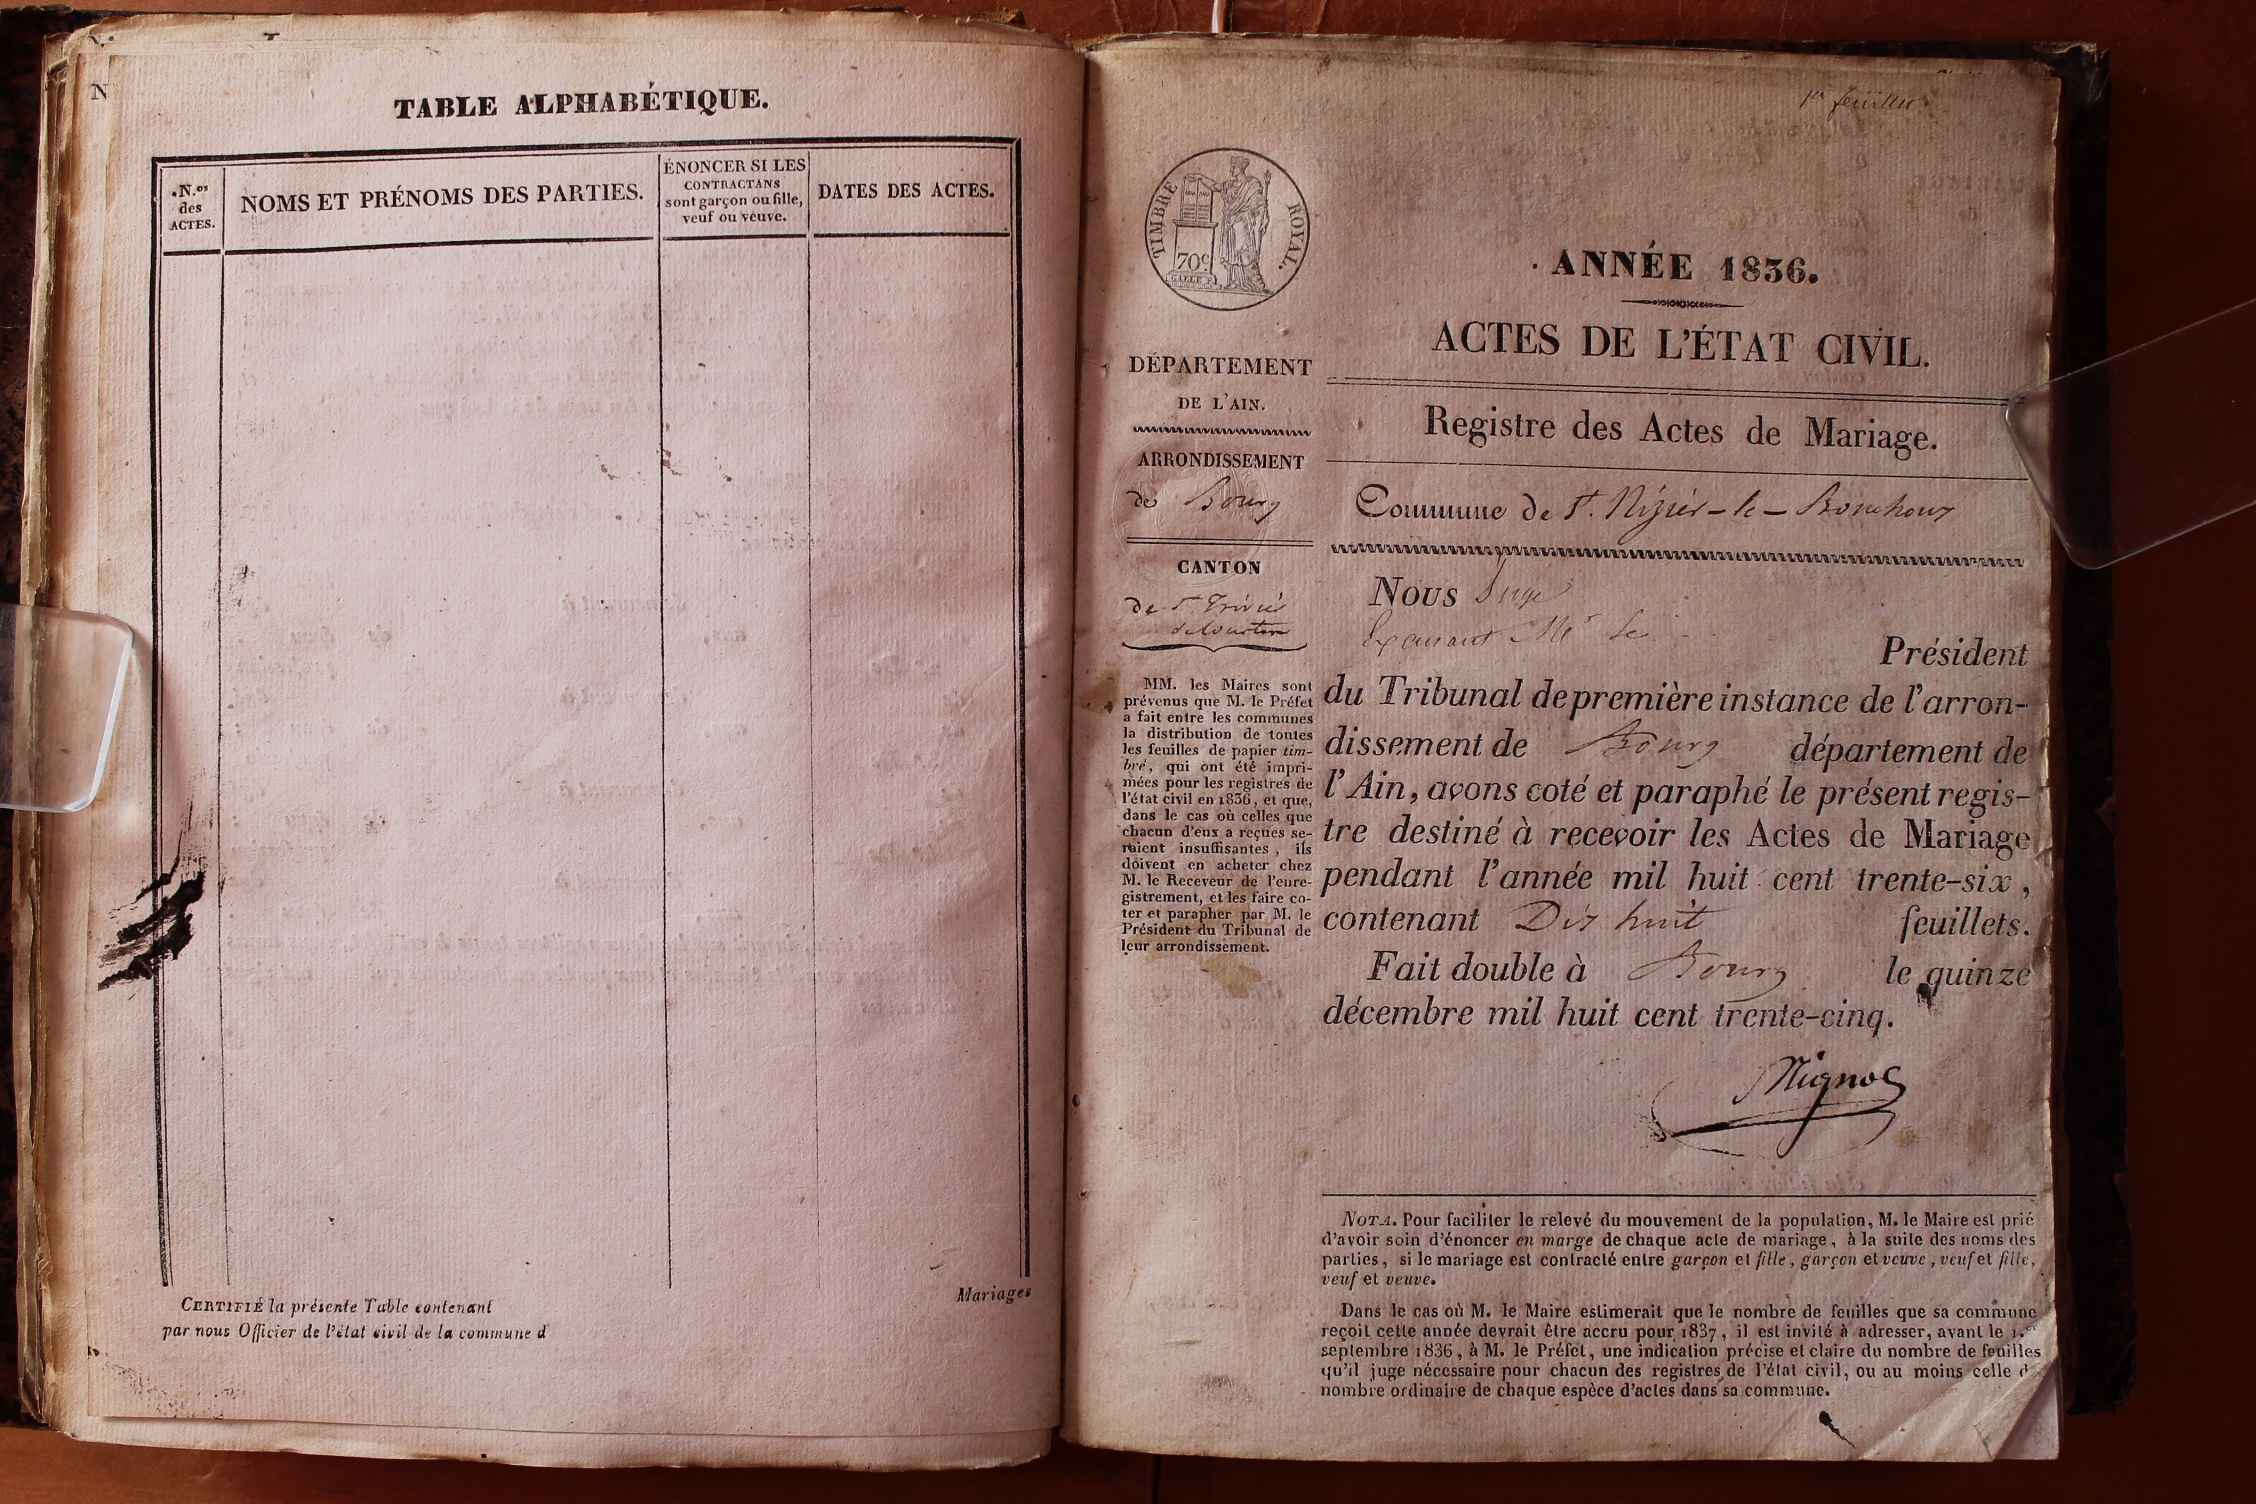 N
TABLE ALPHABÉTIQUE.
N.os des ACTES.
NOMS ET PRÉNOMS DES PARTIES.
ÉNONCER SI LES
CONTRACTANS
sont garçon ou fille,
veuf ou veuve.
DATES DES ACTES.
Mariages
CERTIFIÉ la présente Table contenant
par nous Officier de l'état civil de la commune d
1er feuillet
TIMBRE ROYAL.
70c
DÉPARTEMENT
DE L'AIN.
ARRONDISSEMENT
de Bourg
CANTON
de St. Trivier
de Courtes
MM. les Maires sont
prévenus que M. le Préfet
a fait entre les communes
la distribution de toutes
les feuilles de papier tim-
bré, qui ont été impri-
mées pour les registres de
l'état civil en 1836, et que,
dans le cas où celles que
chacun d'eux a reçues se-
raient insuffisantes, ils
doivent en acheter chez
M. le Receveur de l'enre-
gistrement, et les faire co-
ter et parapher par M. le
Président du Tribunal de
leur arrondissement.
ANNÉE 1836.
ACTES DE L'ÉTAT CIVIL.
Registre des Actes de Mariage.
Commune de St. Nizier-le-Bouchoux
Nous Juge
Exerçant Mr le
Président
du Tribunal de première instance de l'arron-
dissement de Bourg département de
l'Ain, avons coté et paraphé le présent regis-
tre destiné à recevoir les Actes de Mariage
pendant l'année mil huit cent trente-six,
contenant Dix huit feuillets.
Fait double à Bourg le quinze
décembre mil huit cent trente-cinq.
NOTA. Pour faciliter le relevé du mouvement de la population, M. le Maire est prié
d'avoir soin d'énoncer en marge de chaque acte de mariage, à la suite des noms des
parties, si le mariage est contracté entre garçon et fille, garçon et veuve, veuf et fille,
veuf et veuve.
Dans le cas où M. le Maire estimerait que le nombre de feuilles que sa commune
reçoit cette année devrait être accru pour 1837, il est invité à adresser, avant le 1.er
septembre 1836, à M. le Préfet, une indication précise et claire du nombre de feuilles
qu'il juge nécessaire pour chacun des registres de l'état civil, ou au moins celle d
nombre ordinaire de chaque espèce d'actes dans sa commune.